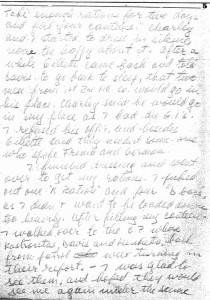 5
take enough rations for two days
and fill your canteens". Charley
and I started to dress in silence
neither happy about it. After a
while Gillette came back and told
us to go back to sleep, that two
men from Co. would go in
his place. Charley said he would go
in my place as I had
I refused his offer, and besides
Gillette said they needed some one
who spoke French and German.
I finished dressing and went
over to get my rations. I picked
out one "K Ration" and four "D bars"
as I didn't want to be loaded down
too heavily. After filling my canteen
I walked over to the C.P. where
Davis and back
from patrol were turning in
their report. — I was glad to
see them, and hoped they would
see me again under the same